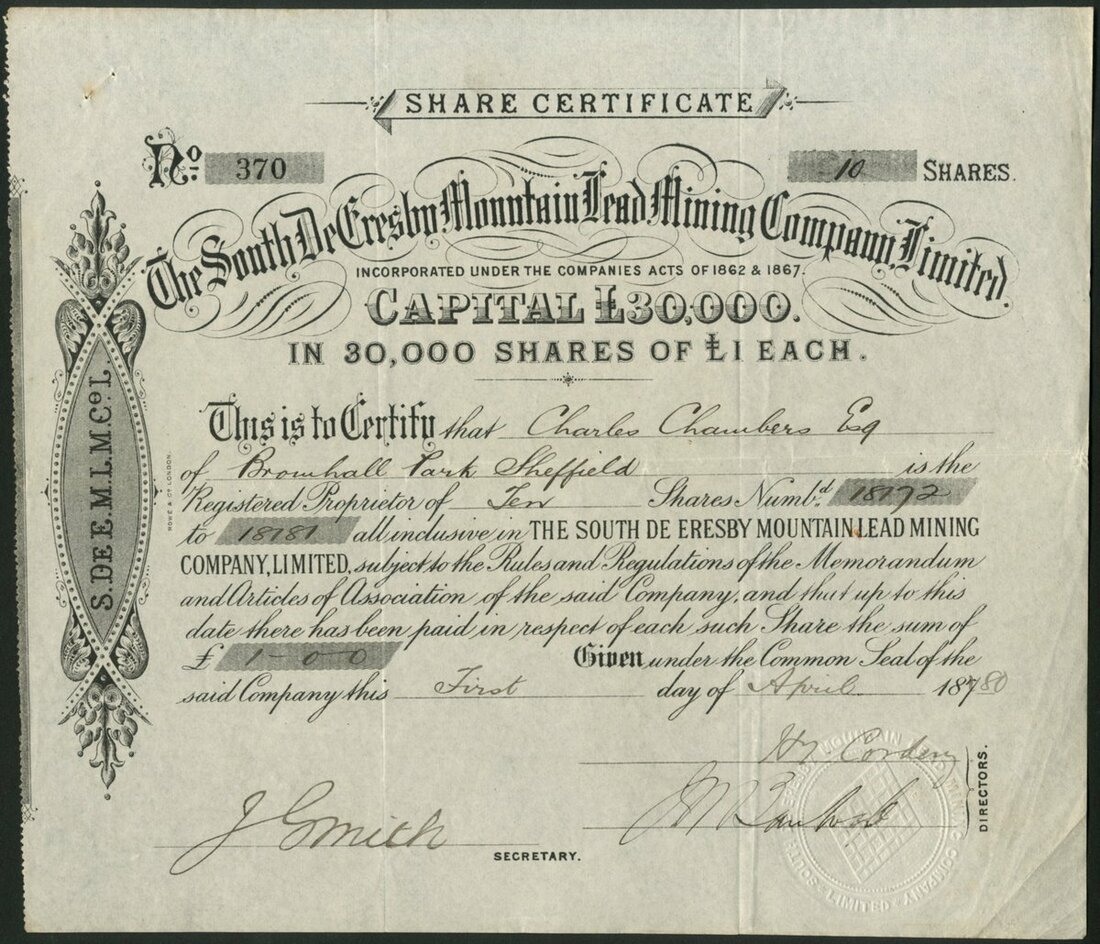 SHARE CERTIFICATE
No. 370
10 SHARES.
The South De Eresby Mountain Lead Mining Company, Limited.
INCORPORATED UNDER THE COMPANIES ACTS OF 1862 & 1867.
CAPITAL £30,000.
IN 30,000 SHARES OF £1 EACH.
This is to Certify that Charles Chambers Esq
of Bromhall Park Sheffield is the
Registered Proprietor of Ten Shares Numbd. 18172
to 18181 all inclusive in THE SOUTH DE ERESBY MOUNTAIN LEAD MINING
COMPANY, LIMITED, subject to the Rules and Regulations of the Memorandum
and Articles of Association of the said Company, and that up to this
date there has been paid in respect of each such Share the sum of
£ 1-0-0 Given under the Common Seal of the
said Company this First day of April 187 80
S. DE E. M. L. M. Co. L.
DIRECTORS.
J Smith
SECRETARY.
SOUTH DE ERESBY MOUNTAIN MINING COMPANY LIMITED